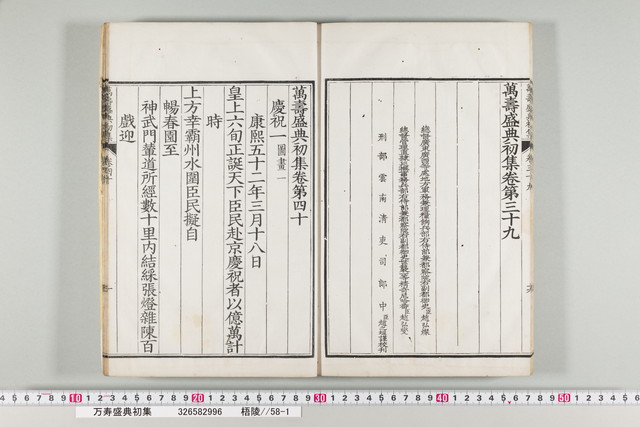 萬壽盛典初集卷第三十九
刑部雲南清吏司郎中臣趙之垣謹校刊
萬壽盛典初集卷第四十
慶祝一圖畫一
康熙五十二年三月十八日
皇上六旬正誕天下臣民赴京慶祝者以億萬計
時
上方幸霸州水圍臣民擬自
暢春園至
神武門輦道所經數十里內結綵張燈雜陳百
戲迎
万寿盛典初集 326582996 梧陵//58-1